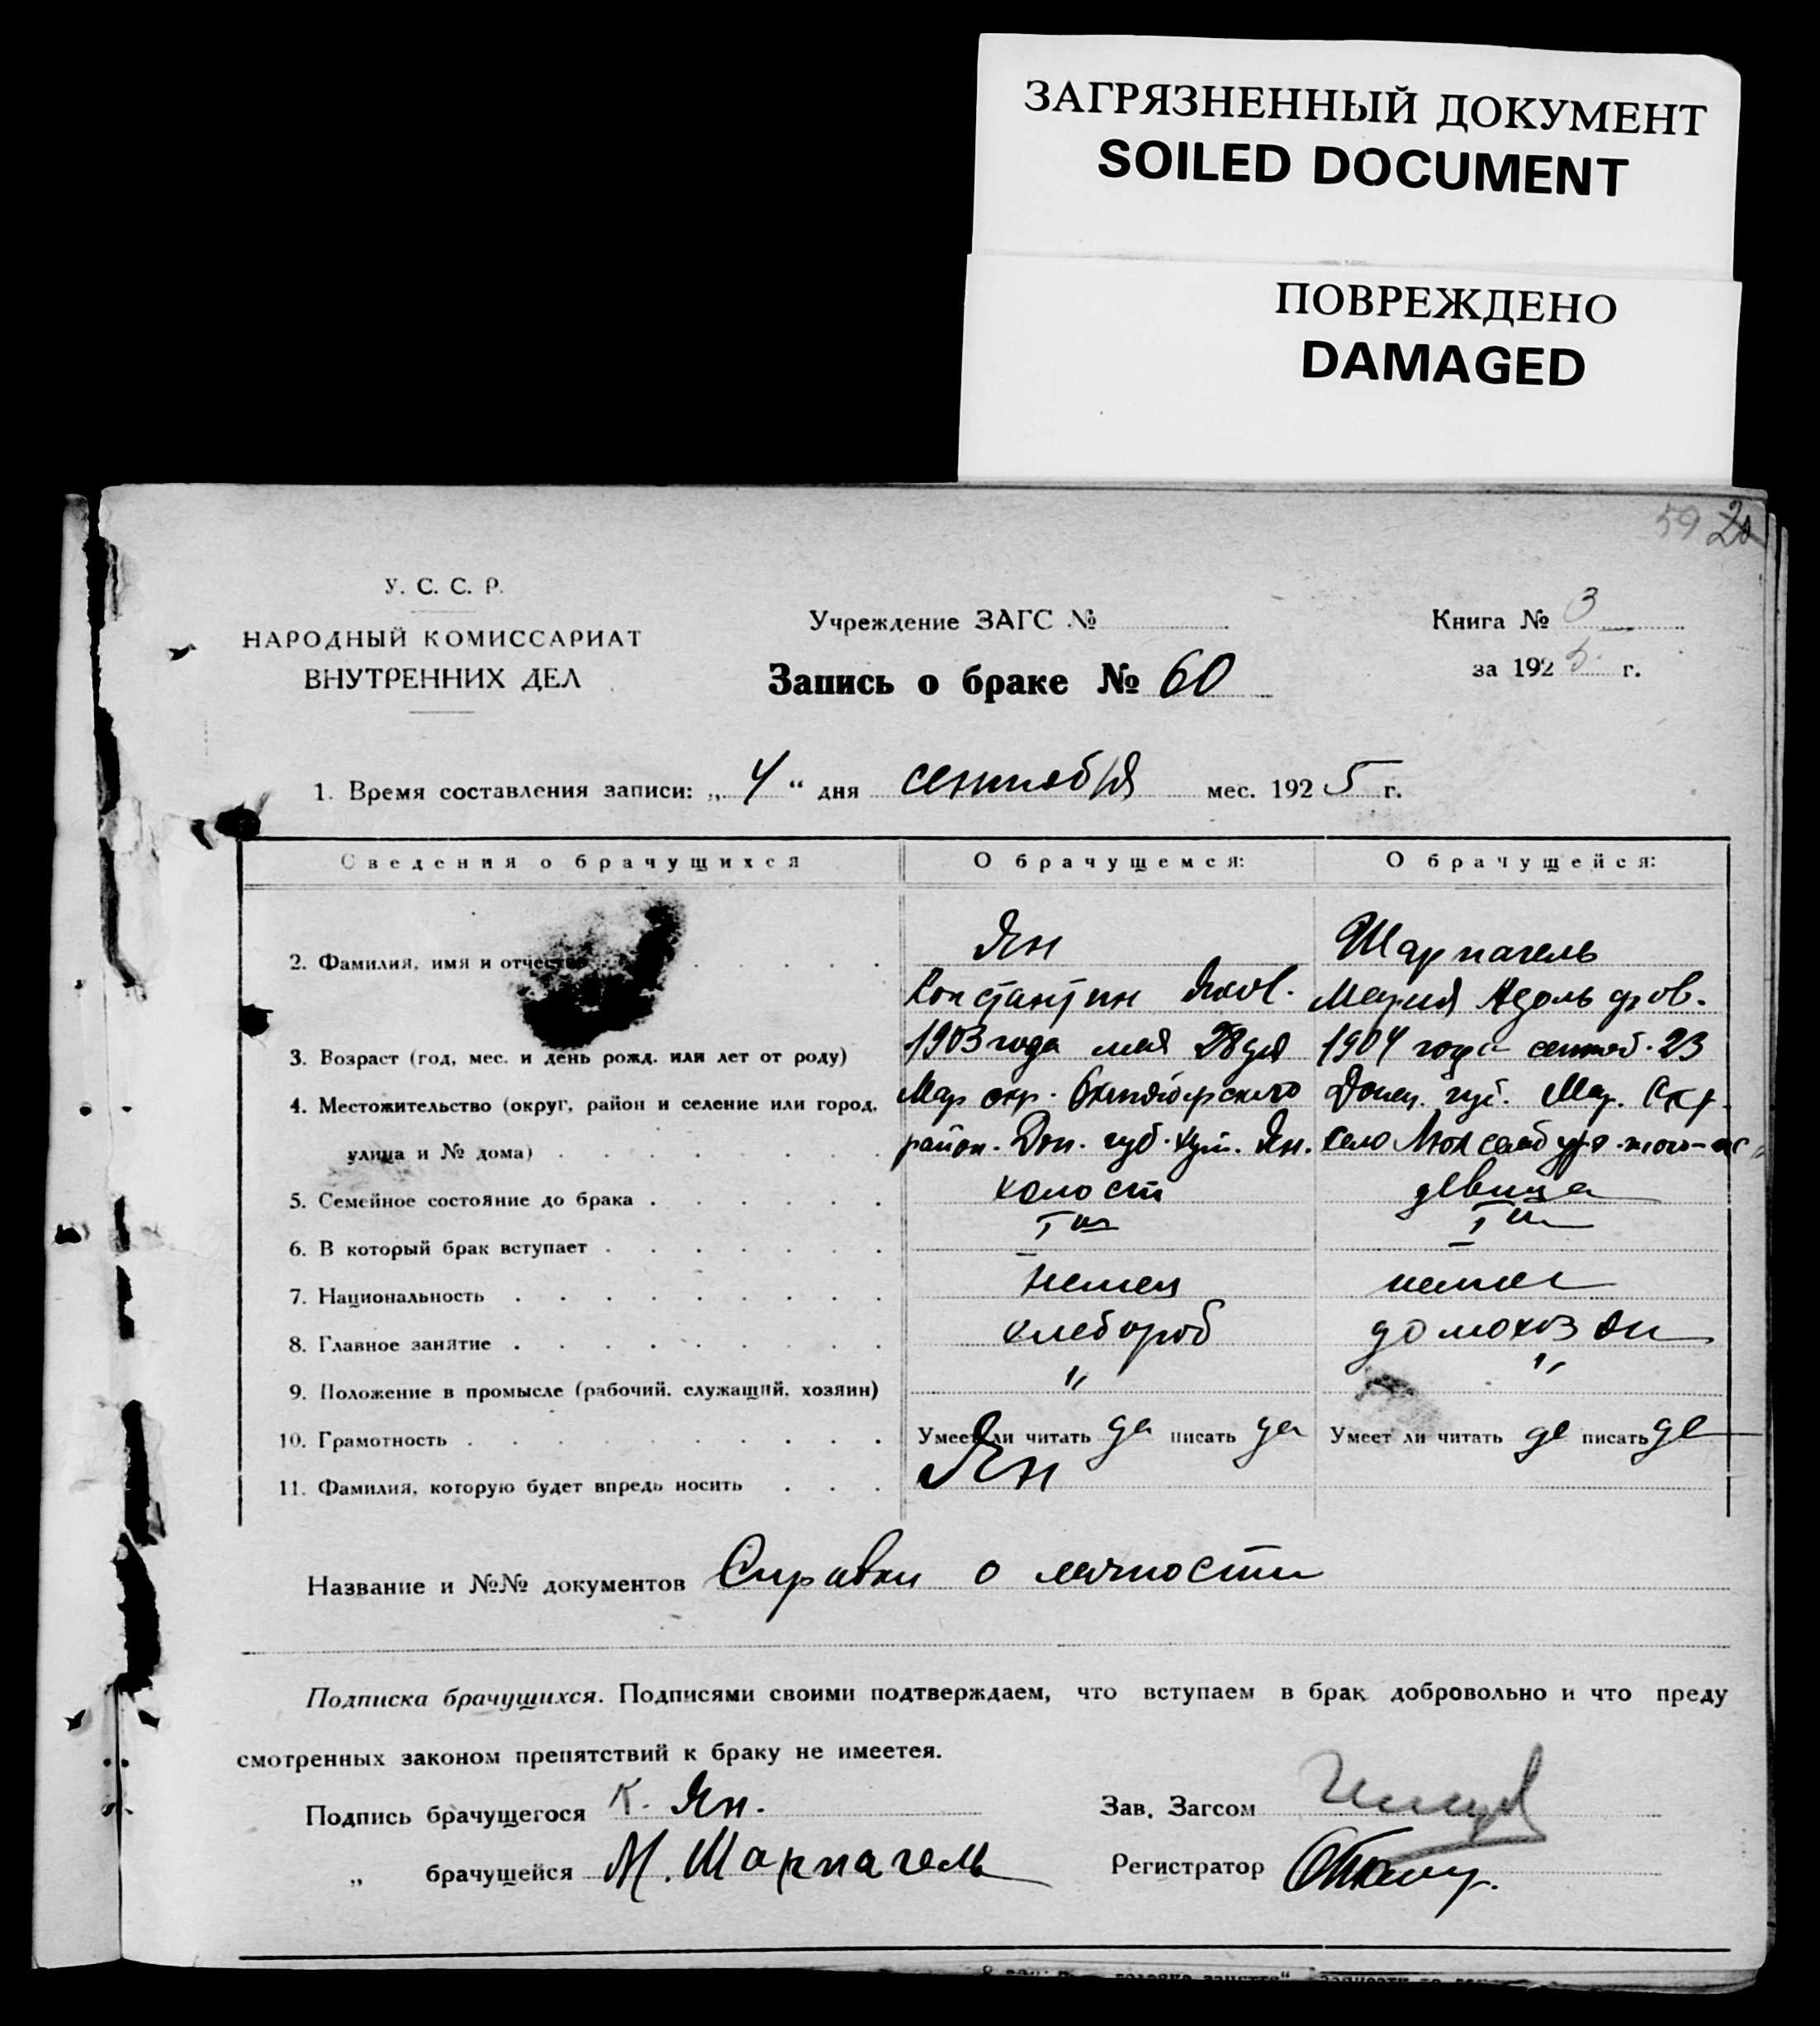 ЗАГРЯЗНЕННЫЙ ДОКУМЕНТ
SOILED DOCUMENT
ПОВРЕЖДЕНО
DAMAGED
59 20
У. С. С. Р.
НАРОДНЫЙ КОМИССАРИАТ
ВНУТРЕННИХ ДЕЛ
Учреждение ЗАГС №
Запись о браке № 60
Книга № 3
за 1925 г.
1. Время составления записи: „ 4 “ дня сентября мес. 1925 г.
Сведения о брачущихся О брачущемся: О брачущейся:
2. Фамилия, имя и отчество Ян Шарпагель
Константин Яков. Мария Адольфов.
3. Возраст (год, мес. и день рожд. или лет от роду) 1903 года мая 28 дня 1904 года сентяб. 23
4. Местожительство (округ, район и селение или город, Мар окр. Октябрьского Донец. губ. Мар. Окр.
улица и № дома) район. Дон. губ. хут. Ян. село
5. Семейное состояние до брака холост девица
6. В который брак вступает I ый I ый
7. Национальность Немец немка
8. Главное занятие хлебороб домохозяй
9. Положение в промысле (рабочий, служащий, хозяин) " "
10. Грамотность Умеет ли читать да писать да Умеет ли читать да писать да
11. Фамилия, которую будет впредь носить Ян
Название и №№ документов Справки о личности
Подписка брачущихся. Подписями своими подтверждаем, что вступаем в брак добровольно и что преду
смотренных законом препятствий к браку не имеется.
Подпись брачущегося К. Ян. Зав. Загсом
„ брачущейся М. Шарпагель Регистратор